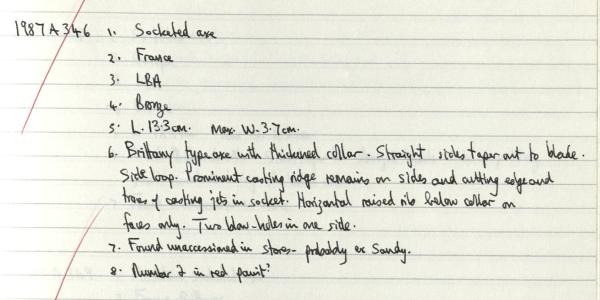 1987A346 1. Socketed axe
2. France
3. LBA
4. Bronze
5. L. 13.3cm. Max. W. 3.7cm.
6. Brittany type axe with thickened collar. Straight sides taper out to blade.
Side loop. Prominent casting ridge remains on sides and cutting edge and
traces of casting jets in socket. Horizontal raised rib below collar on
faces only. Two blow-holes in one side.
7. Found unaccessioned in stores - probably ex Sandy.
8. Number 2 in red paint?